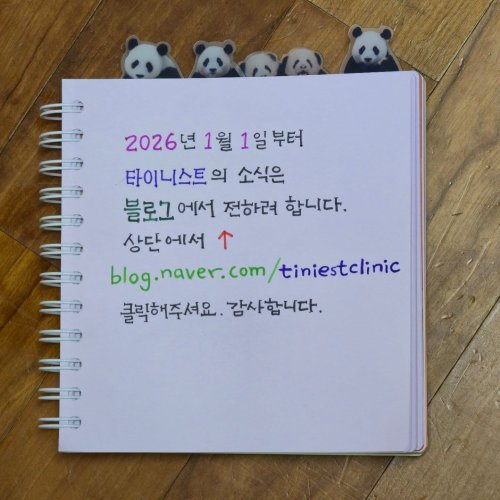 2026년 1월 1일부터
타이니스트의 소식은
블로그에서 전하려 합니다.
상단에서 ↑
blog.naver.com/tiniestclinic
클릭해주셔요. 감사합니다.